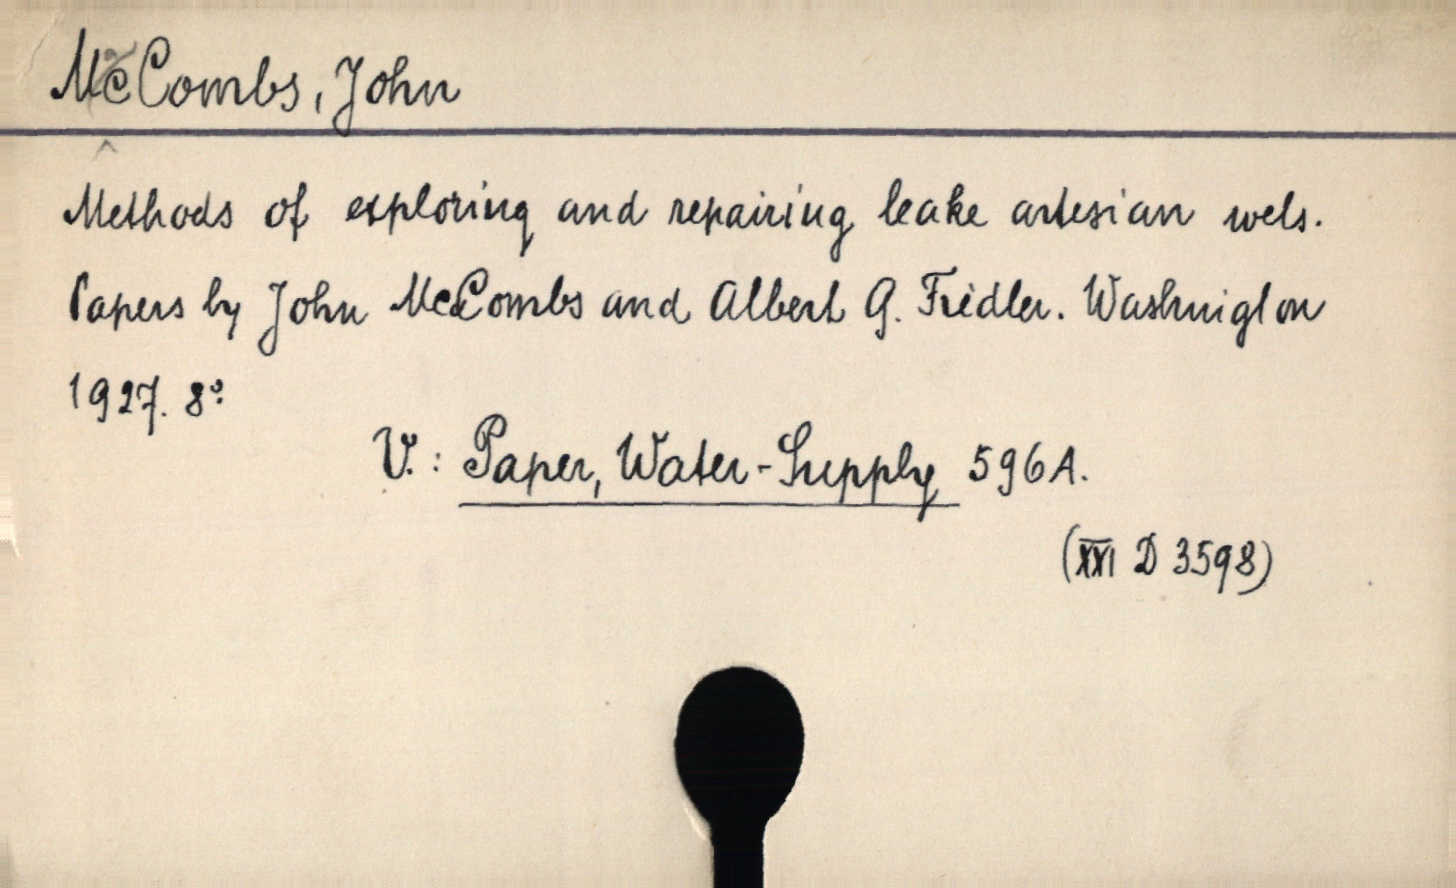 McCombs, John
Methods of exploring and repairing leake artesian wels.
Papers by John McCombs and Albert G. Fiedler. Washnigton
1927. 8°.
V.: Paper, Water-Supply 596A.
(XXI D 3598)